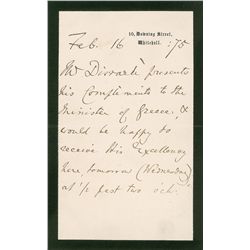 10, Downing Street,
Whitehall.
Feb. 16 : /75
Mr Disraeli presents
his Compliments to the
Minister of Greece, &
would be happy to
receive His Excellency
here tomorrow (Wednesday)
at ½ past two o'ck: